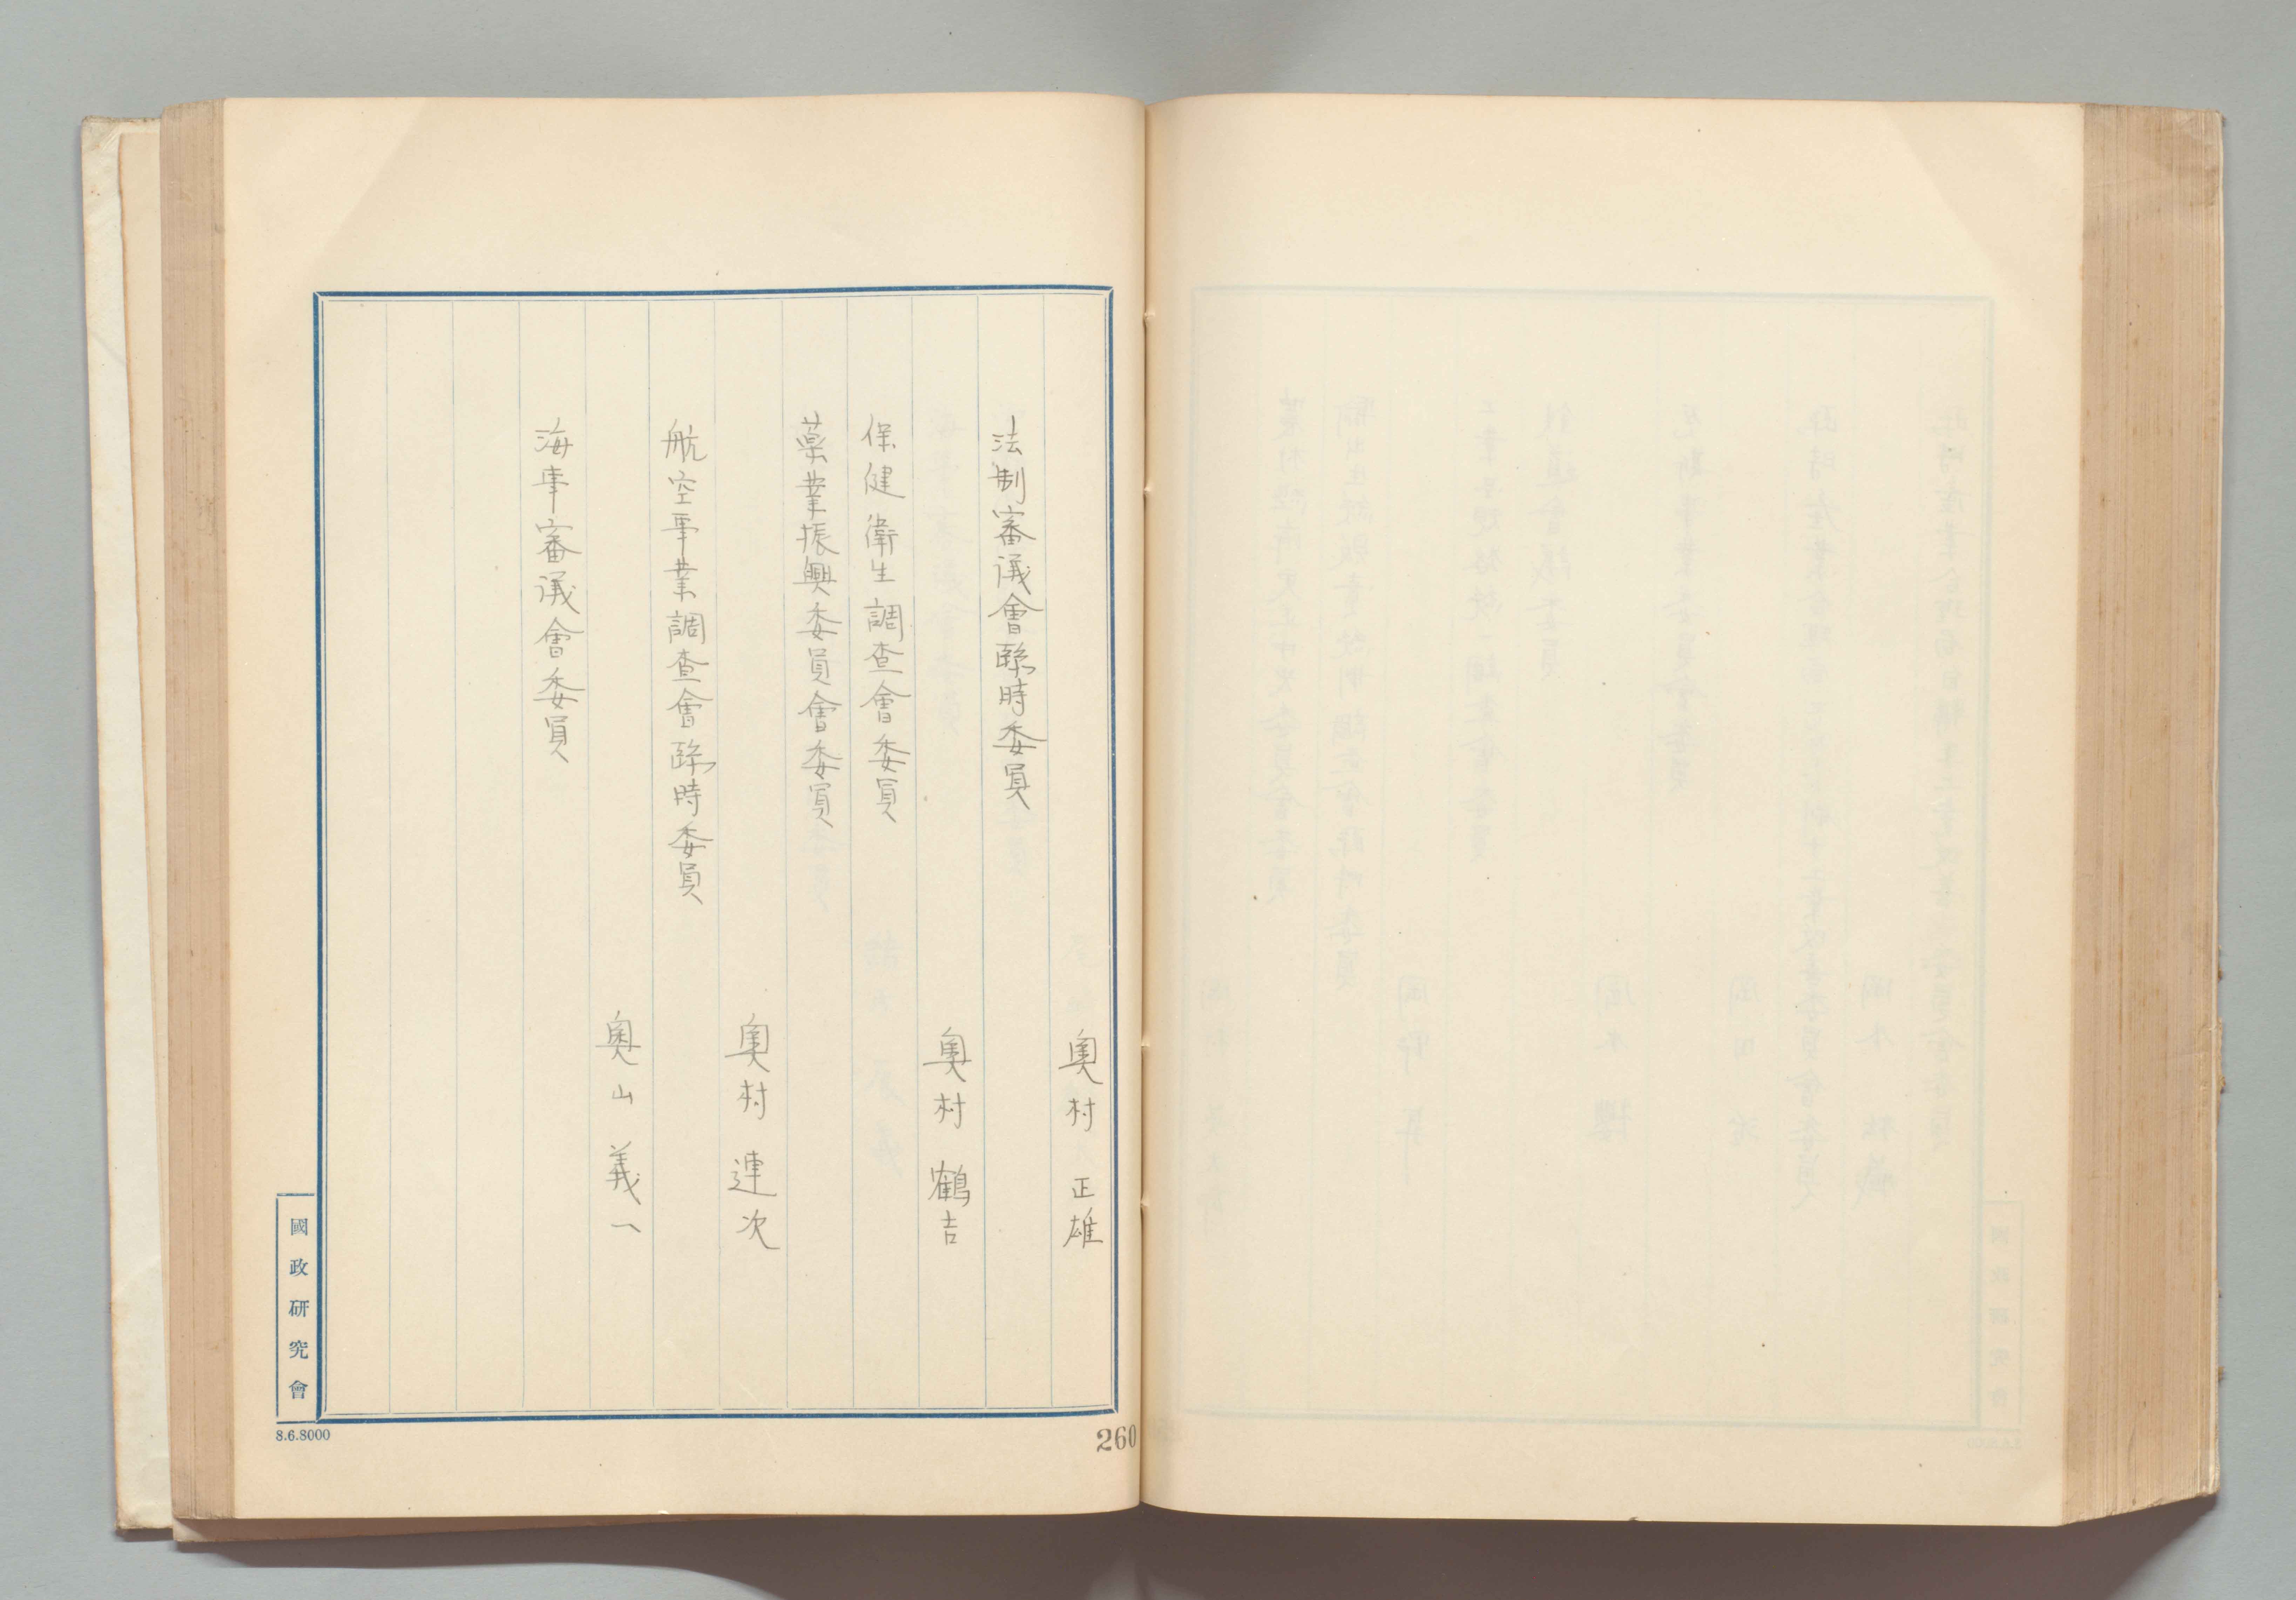 奧村正雄
法制審議會臨時委員
奧村鶴吉
保健衛生調査會委員
藥業振興委員會委員
奧村連次
航空事業調査會臨時委員
奧山義一
海事審議會委員
國政研究會
8.6.8000
260